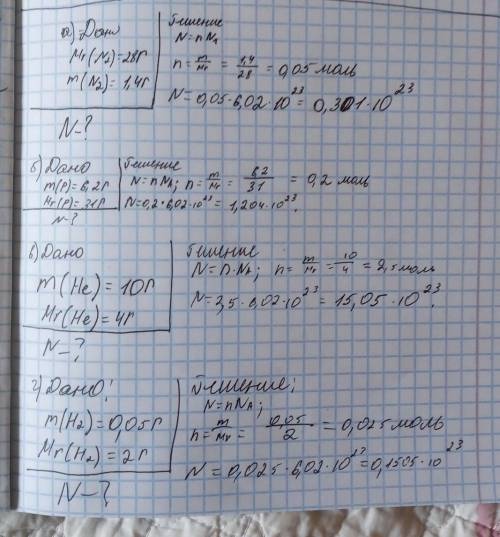 а) Дано
Mr(N₂)=28г
m(N₂)=1,4г
N-?
Решение
N=nNₐ
n=m/Mr=1,4/28=0,05 моль
N=0,05·6,02·10²³=0,301·10²³
б) Дано
m(P)=6,2г
Mr(P)=31г
N-?
Решение
N=nNₐ; n=m/Mr=6,2/31=0,2 моль
N=0,2·6,02·10²³=1,204·10²³.
в) Дано
m(He)=10г
Mr(He)=4г
N-?
Решение
N=n·Nₐ; n=m/Mr=10/4=2,5 моль
N=2,5·6,02·10²³=15,05·10²³.
г) Дано:
m(H₂)=0,05г
Mr(H₂)=2г
N-?
Решение;
N=nNₐ;
n=m/Mr=0,05/2=0,025 моль
N=0,025·6,02·10²³=0,1505·10²³